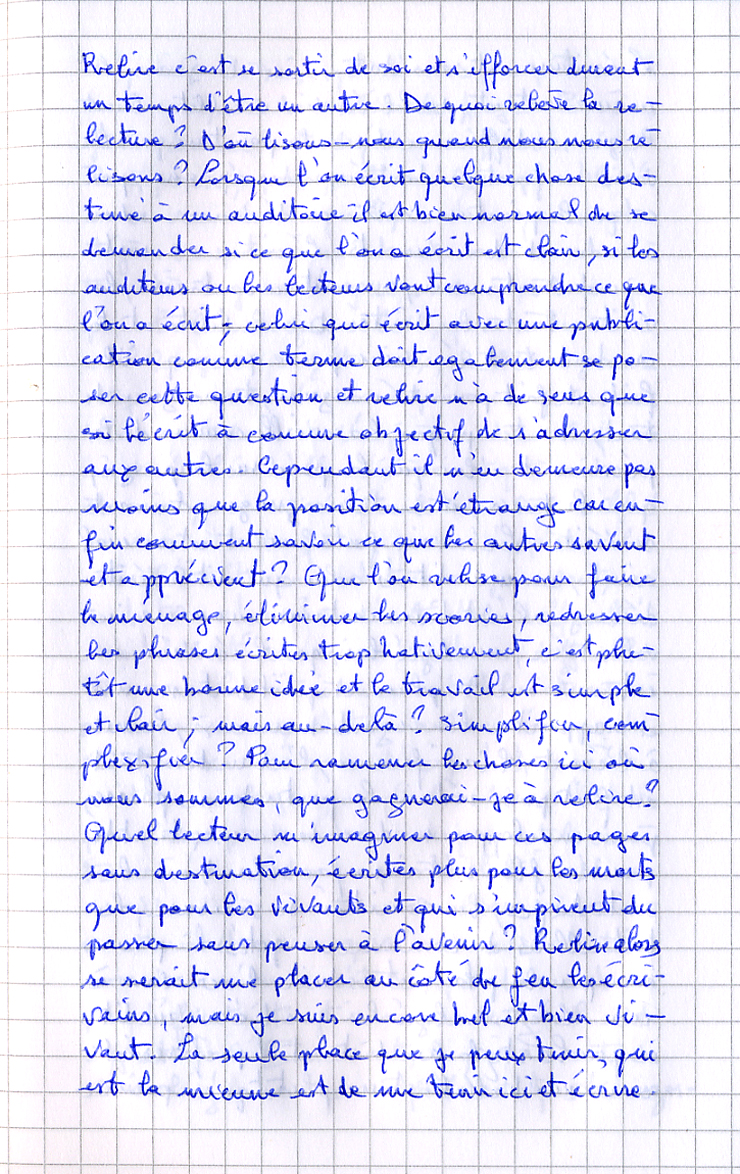 Relire c'est se sortir de soi et s'efforcer durant
un temps d'être un autre. De quoi relève la re-
lecture ? D'où lisons-nous quand nous nous re
lisons ? Lorsque l'on écrit quelque chose des-
tiné à un auditoire il est bien normal de se
demander si ce que l'on a écrit est clair, si les
auditeurs ou les lecteurs vont comprendre ce que
l'on a écrit ; celui qui écrit avec une publi-
cation comme terme doit egalement se po-
ser cette question et relire n'a de sens que
si l'écrit à comme objectif de s'adresser
aux autres. Cependant il n'en demeure pas
moins que la position est étrange car en-
fin comment savoir ce que les autres savent
et apprécient ? Que l'on relise pour faire
le ménage, éliminer les scories, redresser
les phrases écrites trop hativement, c'est plu-
tôt une bonne idée et le travail est simple
et clair ; mais au-delà ? Simplifier, com
plexifier ? Pour ramener les choses ici où
nous sommes, que gagnerai-je à relire ?
Quel lecteur m'imaginer pour ces pages
sans destination, écrites plus pour les morts
que pour les vivants et qui s'inspirent du
passer sans penser à l'avenir ? Relire alors
se serait me placer au côté de feu les écri-
vains, mais je suis encore bel et bien vi-
vant. La seule place que je peux tenir, qui
est la mienne est de me tenir ici et écrire.